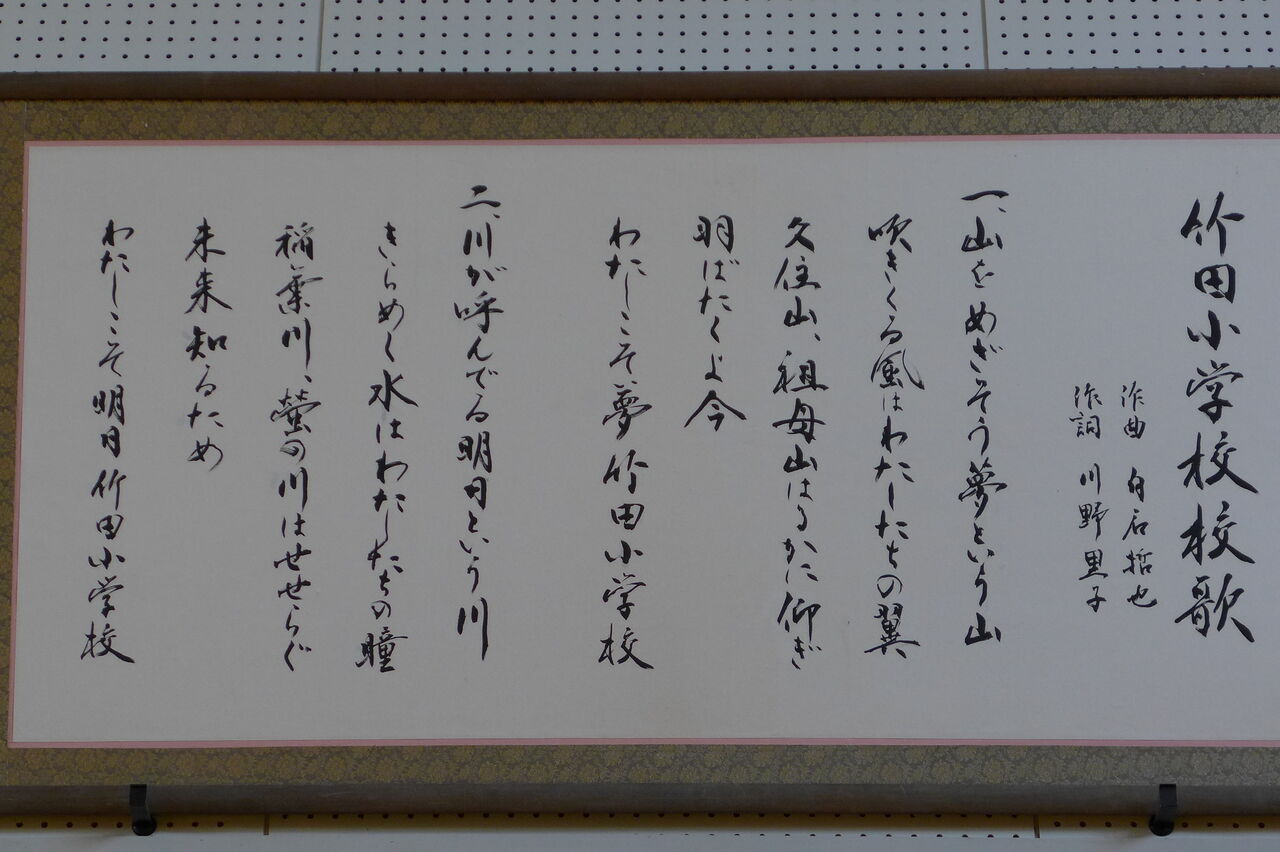 竹田小学校校歌
作曲 白石哲也
作詞 川野里子
一、山をめざそう夢という山
吹きくる風はわたしたちの翼
久住山、祖母山はるかに仰ぎ
羽ばたくよ今
わたしこそ夢竹田小学校
二、川が呼んでる明日という川
きらめく水はわたしたちの瞳
稲葉川、螢の川はせせらぐ
未来知るため
わたしこそ明日竹田小学校